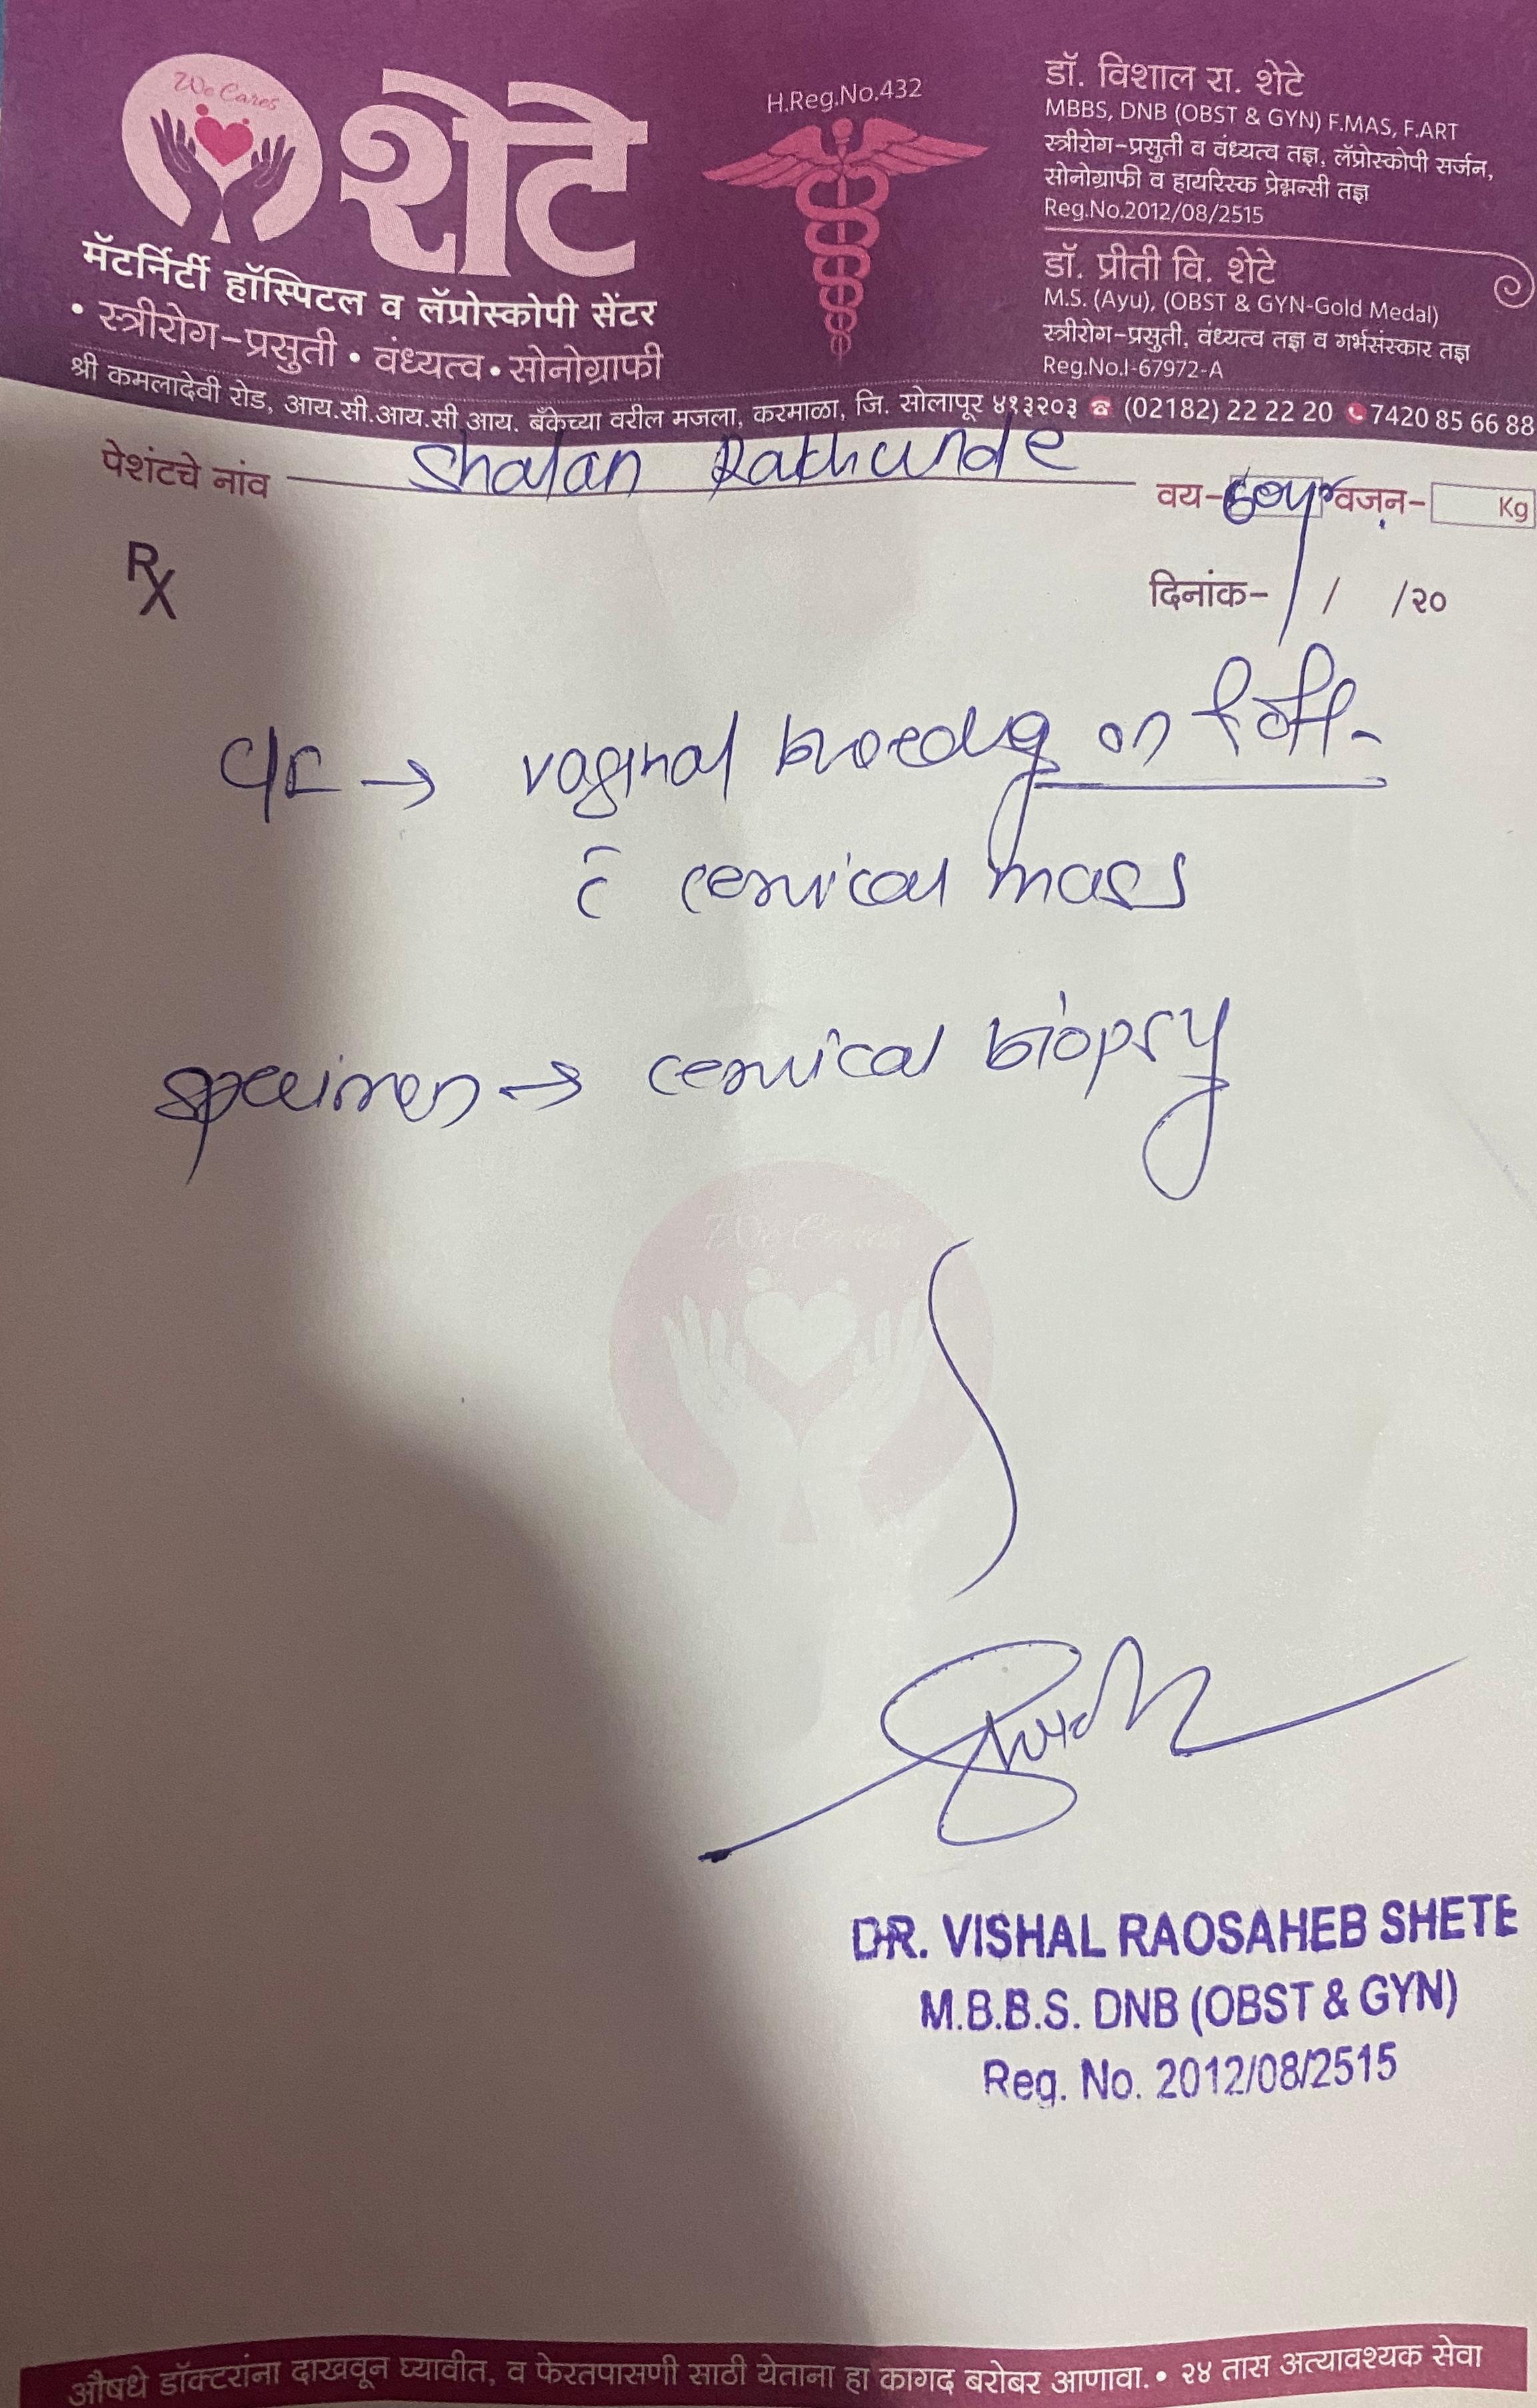 We Cares
शेटे
मॅटर्निटी हॉस्पिटल व लॅप्रोस्कोपी सेंटर
• स्त्रीरोग-प्रसुती • वंध्यत्व • सोनोग्राफी
H.Reg.No.432
डॉ. विशाल रा. शेटे
MBBS, DNB (OBST & GYN) F.MAS, F.ART
स्त्रीरोग-प्रसुती व वंध्यत्व तज्ञ, लॅप्रोस्कोपी सर्जन,
सोनोग्राफी व हायरिस्क प्रेग्नन्सी तज्ञ
Reg.No.2012/08/2515
डॉ. प्रीती वि. शेटे
M.S. (Ayu), (OBST & GYN-Gold Medal)
स्त्रीरोग-प्रसुती, वंध्यत्व तज्ञ व गर्भसंस्कार तज्ञ
Reg.No.I-67972-A
श्री कमलादेवी रोड, आय.सी.आय.सी.आय. बँकेच्या वरील मजला, करमाळा, जि. सोलापूर ४१३२०३ ☎ (02182) 22 22 20 7420 85 66 88
पेशंटचे नांव Shalan वय- 60yr वजन- Kg
Rx
दिनांक- / /२०
→ vaginal bleeding on & off-
c̄ cervical mass
specimen → cervical biopsy
We Cares
DR. VISHAL RAOSAHEB SHETE
M.B.B.S. DNB (OBST & GYN)
Reg. No. 2012/08/2515
औषधे डॉक्टरांना दाखवून घ्यावीत, व फेरतपासणी साठी येताना हा कागद बरोबर आणावा. • २४ तास अत्यावश्यक सेवा